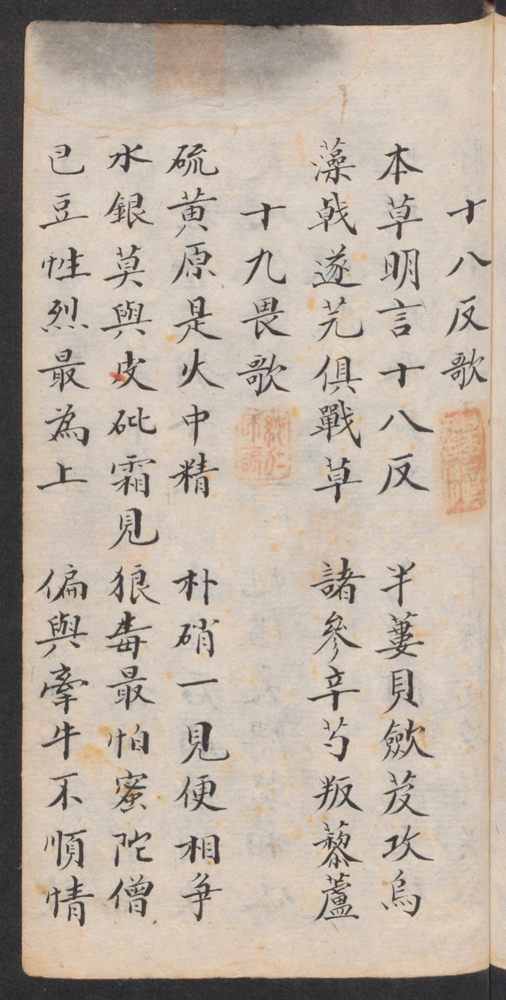 十八反歌
本草明言十八反　半蔞貝歛芨攻烏
藻戟遂芫俱戰草　諸參辛芍叛藜蘆
十九畏歌
硫黄原是火中精　朴硝一見便相爭
水銀莫與皮砒霜見　狼毒最怕蜜陀僧
巴豆性烈最為上　偏與牽牛不順情